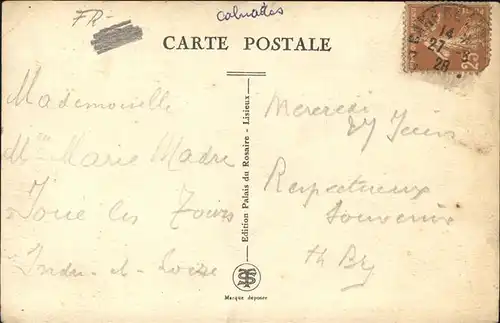 FR-
calvados
CARTE POSTALE
14
27
28
25
Mademoiselle
Mlle Marie Madre
Joue les Tours
Indre-et-Loire
Edition Palais du Rosaire - Lisieux
Marque déposée
Mercredi
27 Juin
Respectueux
Souvenir